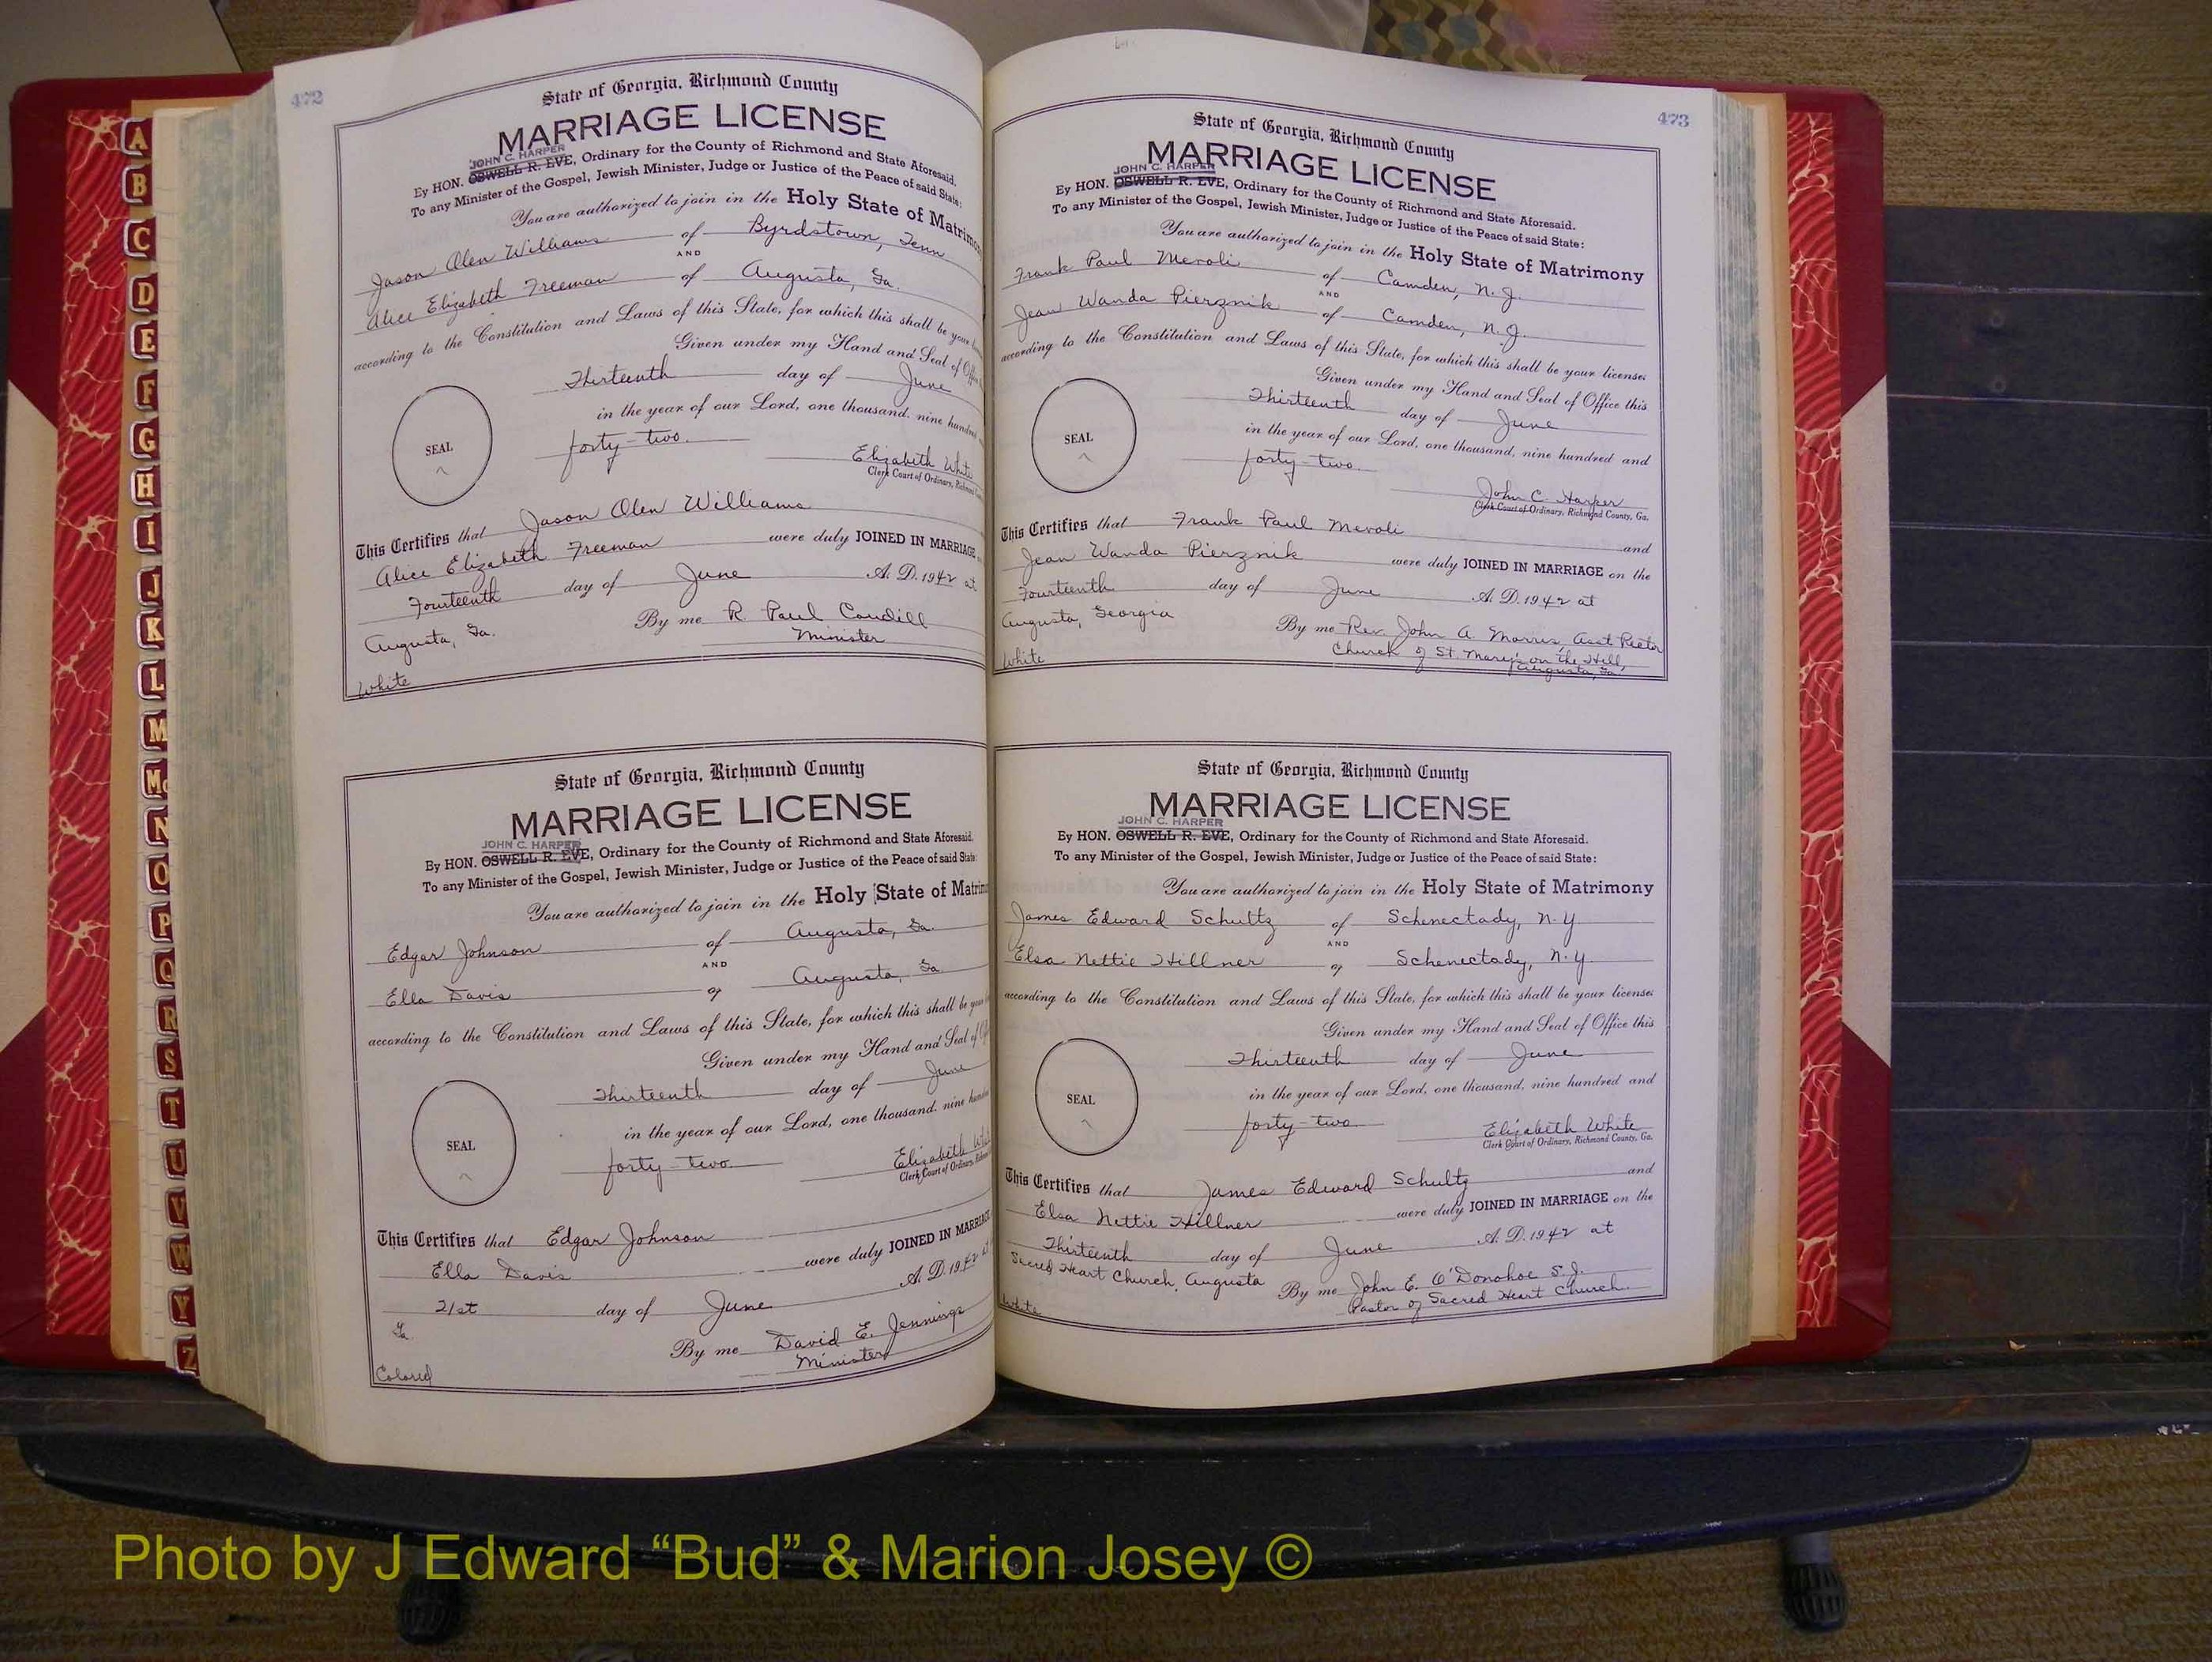 472
State of Georgia, Richmond County
MARRIAGE LICENSE
JOHN C. HARPER
By HON. OSWELL R. EVE, Ordinary for the County of Richmond and State Aforesaid.
To any Minister of the Gospel, Jewish Minister, Judge or Justice of the Peace of said State:
You are authorized to join in the Holy State of Matrimo
Jason Olen Williams of Byrdstown, Tenn
AND
Alice Elizabeth Freeman of Augusta, Ga.
according to the Constitution and Laws of this State, for which this shall be your
Given under my Hand and Seal of
Thirteenth day of June
in the year of our Lord, one thousand, nine hundred
SEAL
forty-two.
Elizabeth White
Clerk Court of Ordinary, Richmond
This Certifies that Jason Olen Williams
Alice Elizabeth Freeman were duly JOINED IN MARRIAGE
Fourteenth day of June A. D. 1942 at
Augusta, Ga. By me R. Paul Caudill
Minister
White
State of Georgia, Richmond County
MARRIAGE LICENSE
JOHN C. HARPER
By HON. OSWELL R. EVE, Ordinary for the County of Richmond and State Aforesaid.
To any Minister of the Gospel, Jewish Minister, Judge or Justice of the Peace of said State:
You are authorized to join in the Holy State of Matrim
Edgar Johnson of Augusta, Ga.
AND
Ella Davis of Augusta, Ga
according to the Constitution and Laws of this State, for which this shall be
Given under my Hand and Seal of
Thirteenth day of June
in the year of our Lord, one thousand, nine
SEAL
forty-two.
Elizabeth
Clerk Court of Ordinary,
This Certifies that Edgar Johnson
Ella Davis were duly JOINED IN MARRIAGE
A. D. 1942
21st day of June
Ga. By me David E. Jennings
Minister
Colored
473
State of Georgia, Richmond County
MARRIAGE LICENSE
JOHN C. HARPER
By HON. OSWELL R. EVE, Ordinary for the County of Richmond and State Aforesaid.
To any Minister of the Gospel, Jewish Minister, Judge or Justice of the Peace of said State:
You are authorized to join in the Holy State of Matrimony
Frank Paul Meroli of Camden, N.J.
AND
Jean Wanda Pierznik of Camden, N.J.
according to the Constitution and Laws of this State, for which this shall be your license:
Given under my Hand and Seal of Office this
Thirteenth day of June
in the year of our Lord, one thousand, nine hundred and
SEAL
forty-two.
John C. Harper
Clerk Court of Ordinary, Richmond County, Ga.
This Certifies that Frank Paul Meroli and
Jean Wanda Pierznik were duly JOINED IN MARRIAGE on the
Fourteenth day of June A. D. 1942 at
Augusta, Georgia By me Rev. John A. Morris, Asst Rector
Church of St. Mary's on the Hill,
Augusta, Ga
White
State of Georgia, Richmond County
MARRIAGE LICENSE
JOHN C. HARPER
By HON. OSWELL R. EVE, Ordinary for the County of Richmond and State Aforesaid.
To any Minister of the Gospel, Jewish Minister, Judge or Justice of the Peace of said State:
You are authorized to join in the Holy State of Matrimony
James Edward Schultz of Schenectady, N.Y.
AND
Elsa Nettie Hillner of Schenectady, N.Y.
according to the Constitution and Laws of this State, for which this shall be your license:
Given under my Hand and Seal of Office this
Thirteenth day of June
in the year of our Lord, one thousand, nine hundred and
SEAL
forty-two
Elizabeth White
Clerk Court of Ordinary, Richmond County, Ga.
This Certifies that James Edward Schultz and
Elsa Nettie Hillner were duly JOINED IN MARRIAGE on the
Thirteenth day of June A. D. 1942 at
Sacred Heart Church, Augusta By me John E. O'Donohoe S.J.
Pastor of Sacred Heart Church.
White
A
B
C
D
E
F
G
H
I
J
K
L
M
Mc
N
O
P
Q
R
S
T
U
V
W
Y
Z
Photo by J Edward “Bud” & Marion Josey ©